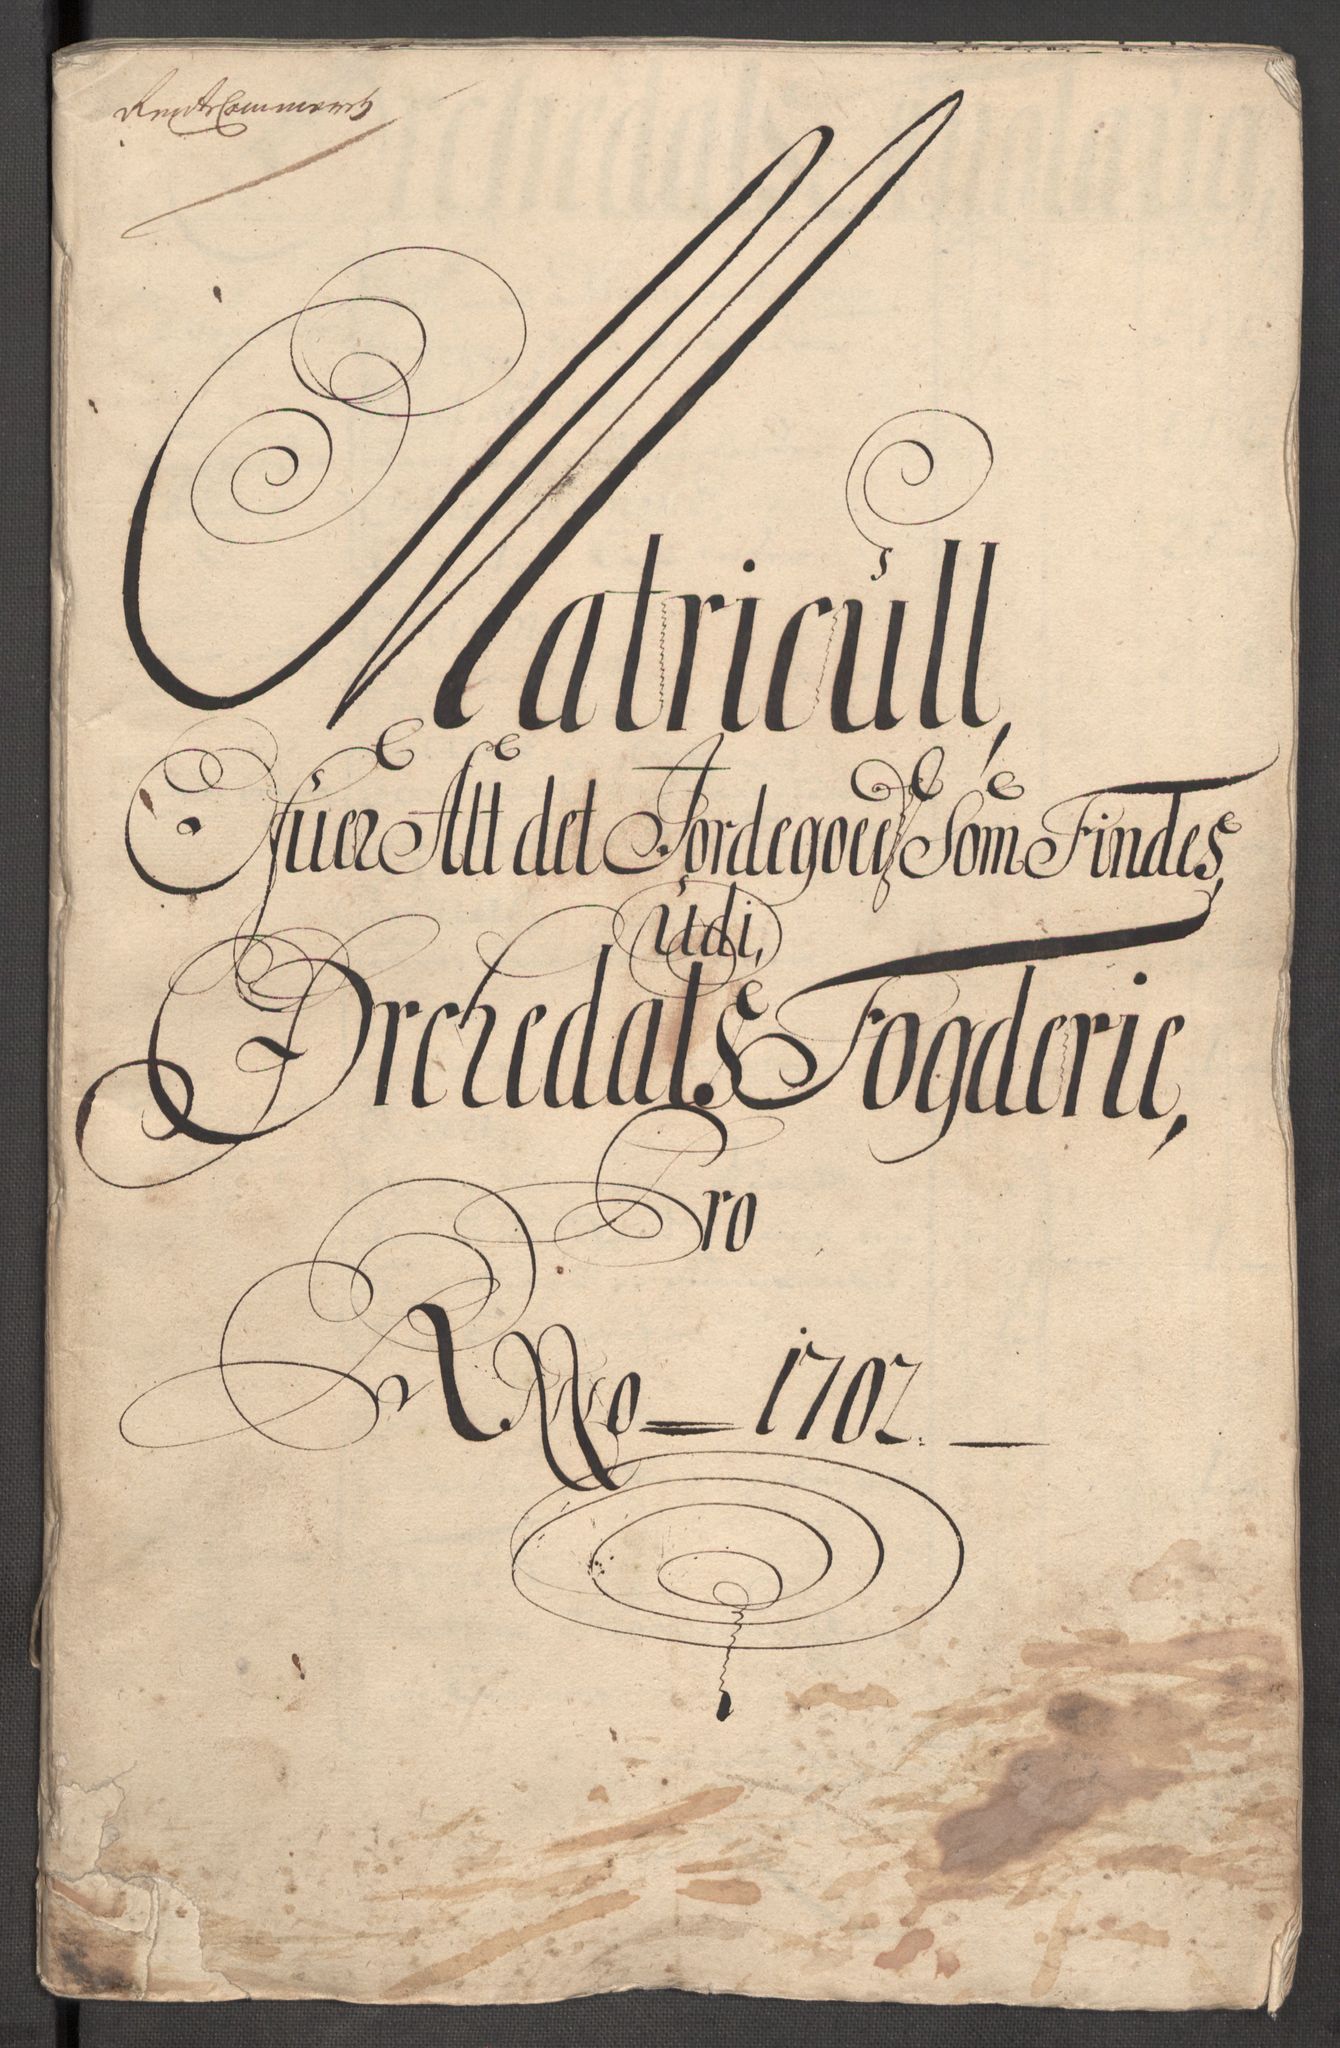 RenteCammeretz
Matricull,
Ofuer Alt det Jordegoedtz Som Findes,
udi,
Orchedals Fogderie,
Pro
Anno 1702.